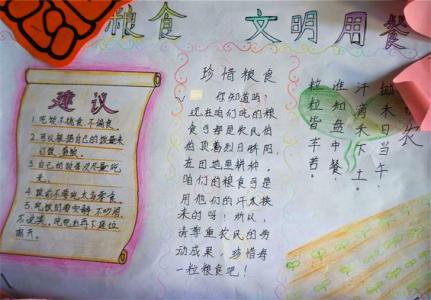 粮食 文明用餐
建议
1. 吃饭不挑食、不偏食。
2. 可以根据自己的饭量来
订饭、盛饭。
3. 自己的饭菜尽量吃
完。
4. 饭前不要吃太多零食。
5. 吃饭时要安静 不吵闹,
不说笑,吃完立即下座位
离开。
珍惜粮食
你知道吗?
现在咱们吃的粮
食可都是农民伯
伯顶着烈日骄阳,
在田地里耕种。
咱们的粮食可是
用他们的汗水换
来的呀!所以,
请尊重农民的劳
动成果,珍惜每
一粒粮食吧!
农
锄禾日当午,
汗滴禾下土。
谁知盘中餐,
粒粒皆辛苦。